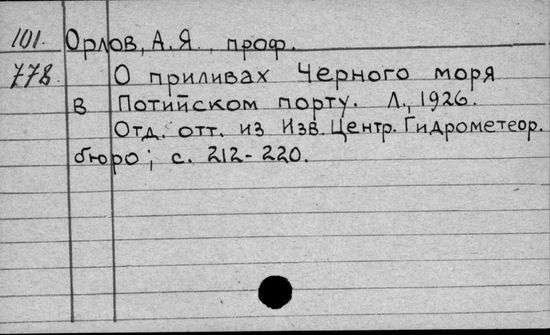 101. Орлов, А.Я., проф.
778. О приливах Черного моря
в Потийском порту. Л., 1926.
Отд. отт. из Изв. Центр. Гидрометеор.
бюро; с. 212-220.